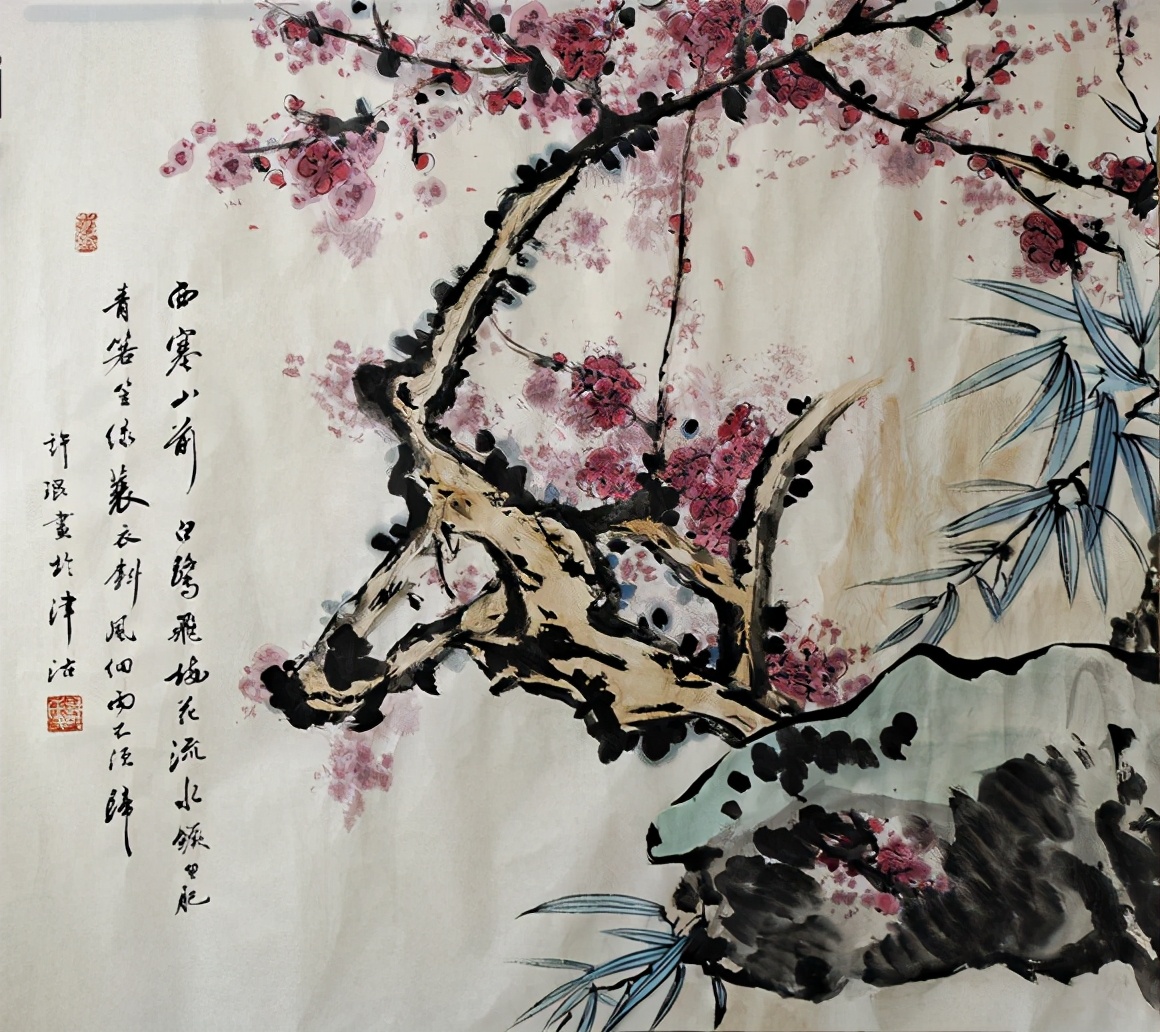 西塞山前白鷺飛桃花流水鱖魚肥
青箬笠綠蓑衣斜風細雨不須歸
許琨畫於津沽